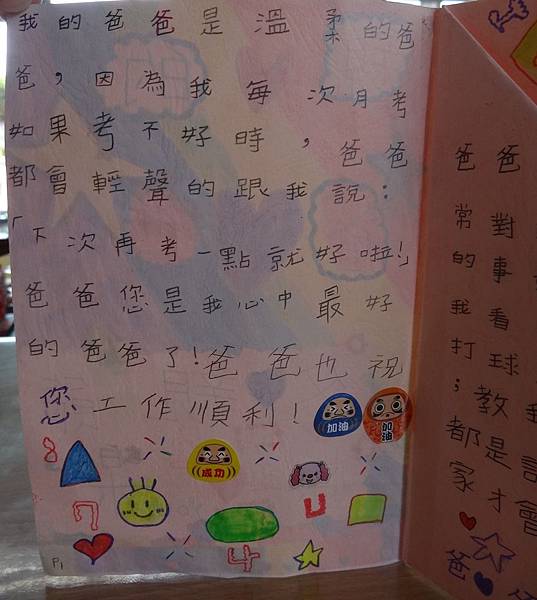 我的爸爸是溫柔的爸
爸，因為我每次月考
如果考不好時，爸爸
都會輕聲的跟我說：
「下次再考一點就好啦!」
爸爸您是我心中最好
的爸爸了!爸爸也祝
您工作順利!
加油
加油
成功
8
U
4
P1
爸爸
常對
的事
我看
打球
；教我
都是
家才會
爸